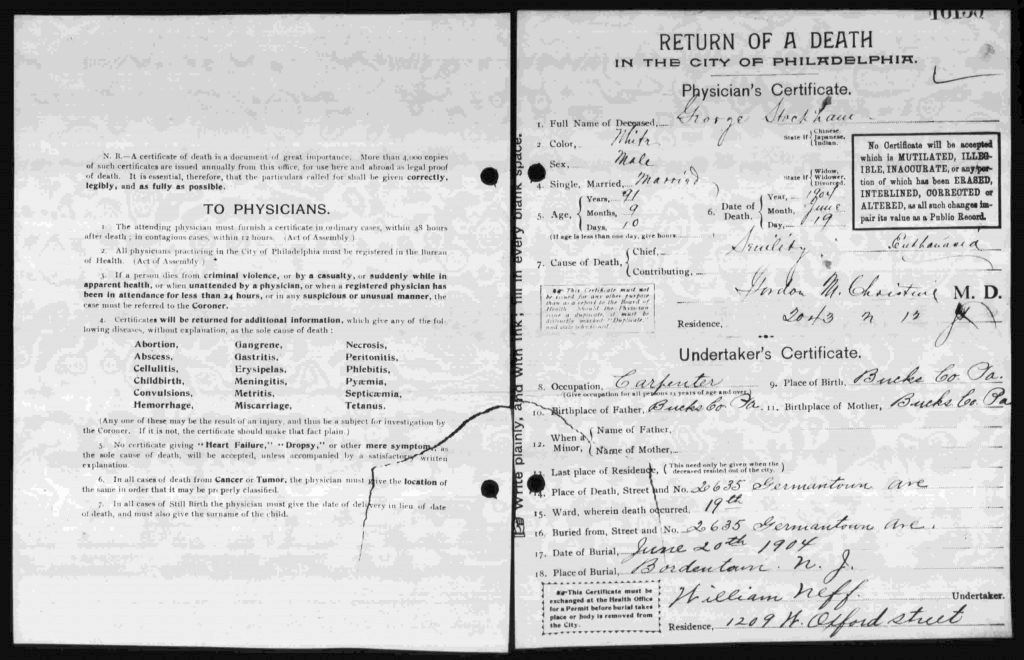 N. B.—A certificate of death is a document of great importance. More than 4,000 copies
of such certificates are issued annually from this office, for use here and abroad as legal proof
of death. It is essential, therefore, that the particulars called for shall be given correctly,
legibly, and as fully as possible.
TO PHYSICIANS.
1. The attending physician must furnish a certificate in ordinary cases, within 48 hours
after death; in contagious cases, within 12 hours. (Act of Assembly.)
2. All physicians practicing in the City of Philadelphia must be registered in the Bureau
of Health. (Act of Assembly)
3. If a person dies from criminal violence, or by a casualty, or suddenly while in
apparent health, or when unattended by a physician, or when a registered physician has
been in attendance for less than 24 hours, or in any suspicious or unusual manner, the
case must be referred to the Coroner.
4. Certificates will be returned for additional information, which give any of the fol-
lowing diseases, without explanation, as the sole cause of death:
Abortion, Gangrene, Necrosis,
Abscess, Gastritis, Peritonitis,
Cellulitis, Erysipelas, Phlebitis,
Childbirth, Meningitis, Pyæmia,
Convulsions, Metritis, Septicæmia,
Hemorrhage, Miscarriage, Tetanus.
(Any one of these may be the result of an injury, and thus be a subject for investigation by
the Coroner. If it is not, the certificate should make that fact plain.)
5. No certificate giving "Heart Failure," "Dropsy," or other mere symptom, as
the sole cause of death, will be accepted, unless accompanied by a satisfactory written
explanation.
6. In all cases of death from Cancer or Tumor, the physician must give the location of
the same in order that it may be properly classified.
7. In all cases of Still Birth the physician must give the date of delivery in lieu of date
of death, and must also give the surname of the child.
Write plainly, and with ink; fill in every blank space.
RETURN OF A DEATH
IN THE CITY OF PHILADELPHIA.
Physician's Certificate.
1. Full Name of Deceased, George Stockham
2. Color, White State if Chinese, Japanese, Indian.
3. Sex, Male
4. Single, Married, Married State if Widow, Widower, Divorced.
No Certificate will be accepted
which is MUTILATED, ILLEG-
IBLE, INACCURATE, or any por-
tion of which has been ERASED,
INTERLINED, CORRECTED or
ALTERED, as all such changes im-
pair its value as a Public Record.
5. Age, Years, 71 Months, 9 Days, 10
(If age is less than one day, give hours
6. Date of Death, Year, 1904 Month, June Day, 19
7. Cause of Death, Chief, Senility
Contributing,
This Certificate must not
be issued for any other purpose
than as a report to the Board of
Health. Should the Physician
give a duplicate, it must be
distinctly marked "Duplicate,"
and state
Gordon M. Christine M. D.
Residence, 2043 N 12
Undertaker's Certificate.
8. Occupation, Carpenter 9. Place of Birth, Bucks Co Pa.
(Give occupation for all persons 15 years of age and over.)
10. Birthplace of Father, Bucks Co Pa. 11. Birthplace of Mother, Bucks Co. Pa
12. When a Minor, Name of Father,
Name of Mother,
13. Last place of Residence, (This need only be given when the deceased resided out of the city.)
14. Place of Death, Street and No. 2635 Germantown Ave
15. Ward, wherein death occurred, 19th
16. Buried from, Street and No. 2635 Germantown Ave.
17. Date of Burial, June 20th 1904
18. Place of Burial, Bordentown. N. J.
This Certificate must be
exchanged at the Health Office
for a Permit before burial takes
place or body is removed from
the City.
William Neff. Undertaker.
Residence, 1209 W. Oxford street